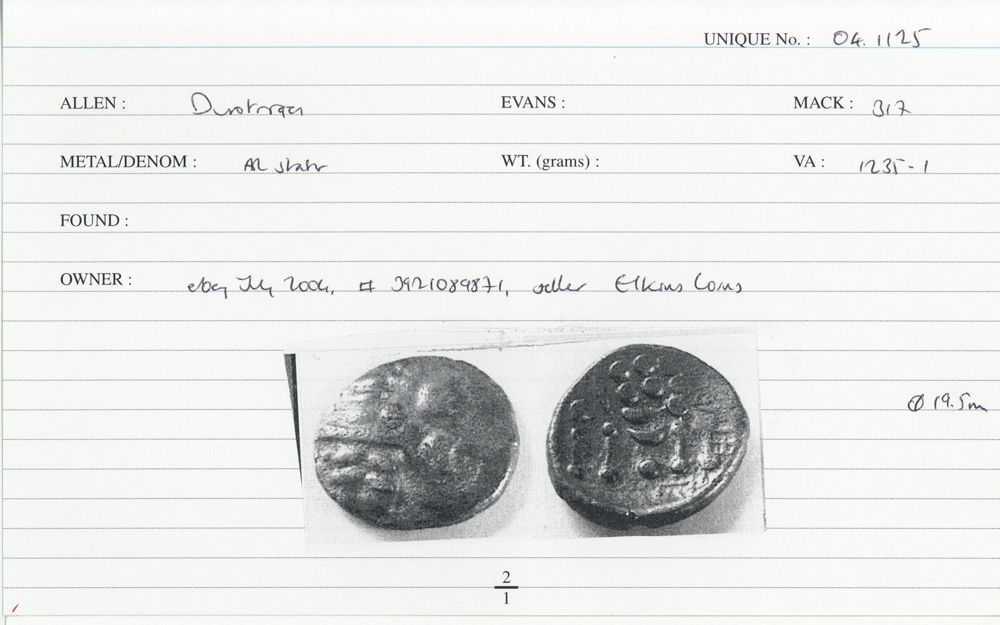 UNIQUE No. : 04.1125
ALLEN : Durotrigan EVANS : MACK : 317
METAL/DENOM : AR stater WT. (grams) : VA : 1235-1
FOUND :
OWNER : ebay July 2004, # 3921089871, seller Elkins Coins
Ø 19.5m
2
1